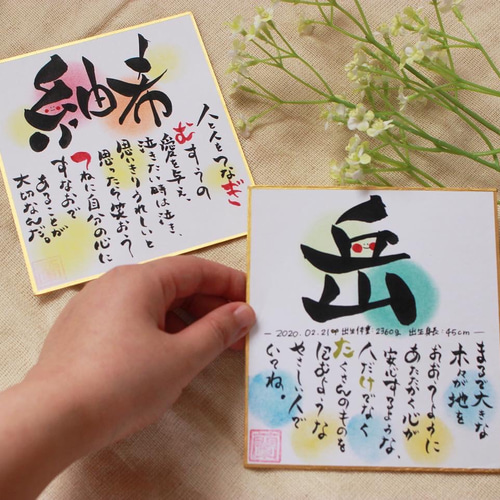 紬希
人と人をつなぎ
むすうの
愛を与え、
泣きたい時は泣き、
思いきりうれしいと
思ったら笑おう
つねに自分の心に
すなおで
あることが
大切なんだ。
岳
2020.02.21 出生体重:2360g 出生身長:45cm
まるで大きな
木が地を
おおうように
あたたかく心が
安心するような、
人だけでなく
たくさんのものを
包むような
やさしい人で
いてね。